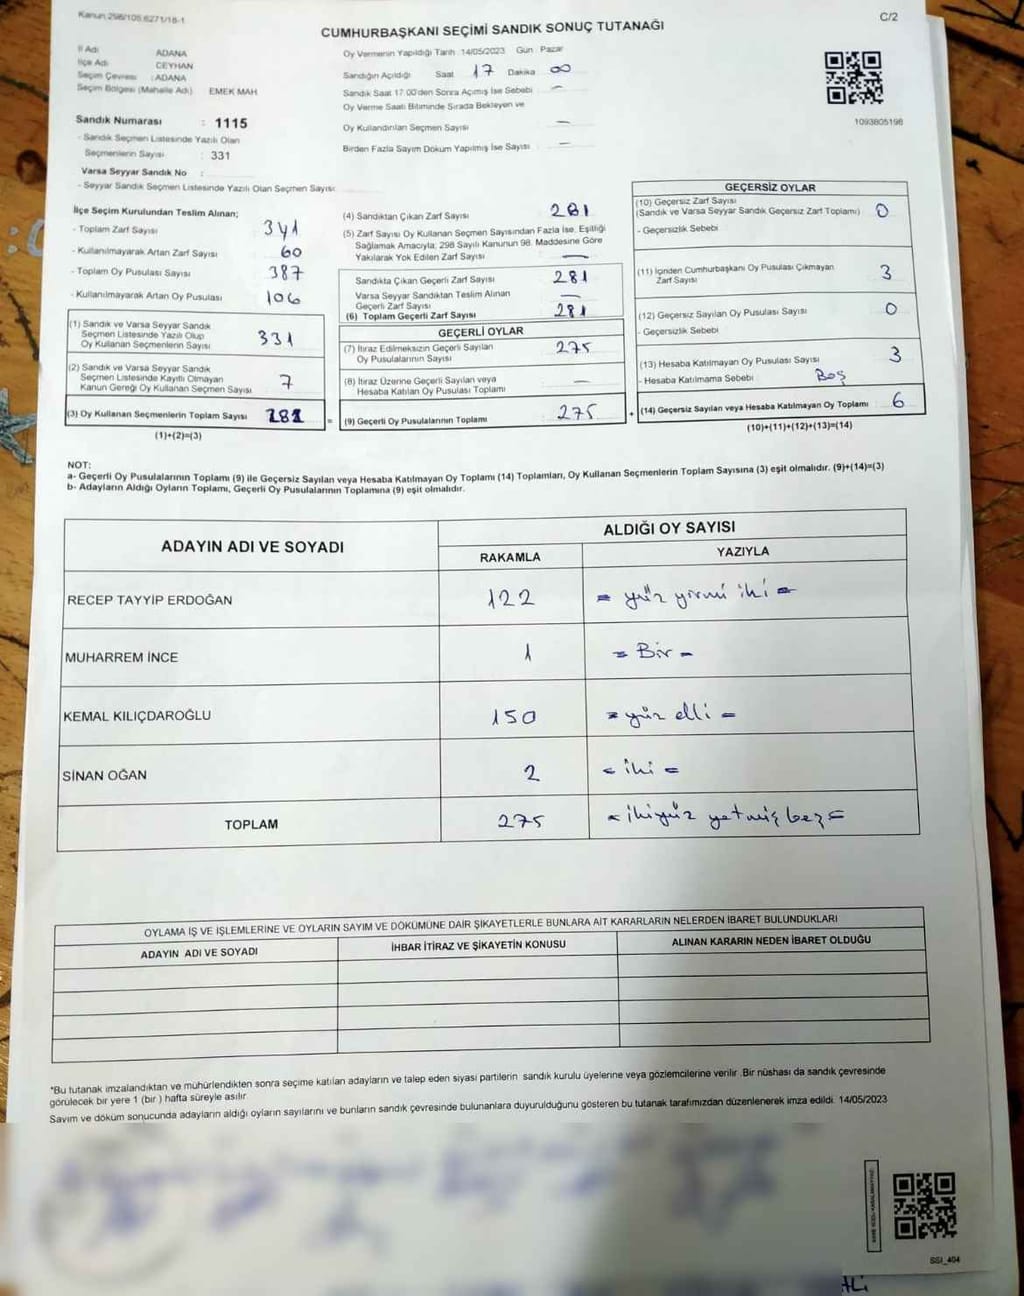 Kanun 298/105,6271/18-1
C/2
CUMHURBAŞKANI SEÇİMİ SANDIK SONUÇ TUTANAĞI
İl Adı ADANA
İlçe Adı CEYHAN
Seçim Çevresi : ADANA
Seçim Bölgesi (Mahalle Adı) EMEK MAH
Sandık Numarası : 1115
- Sandık Seçmen Listesinde Yazılı Olan
Seçmenlerin Sayısı : 331
Varsa Seyyar Sandık No :
- Seyyar Sandık Seçmen Listesinde Yazılı Olan Seçmen Sayısı
Oy Vermenin Yapıldığı Tarih 14/05/2023 Gün Pazar
Sandığın Açıldığı Saat 17 Dakika 00
Sandık Saat 17.00'den Sonra Açımış İse Sebebi —
Oy Verme Saati Bitiminde Sırada Bekleyen ve
Oy Kullandırılan Seçmen Sayısı —
Birden Fazla Sayım Döküm Yapılmış İse Sayısı —
1093805198
İlçe Seçim Kurulundan Teslim Alınan;
- Toplam Zarf Sayısı 341
- Kullanılmayarak Artan Zarf Sayısı 60
- Toplam Oy Pusulası Sayısı 387
- Kullanılmayarak Artan Oy Pusulası 106
(1) Sandık ve Varsa Seyyar Sandık
Seçmen Listesinde Yazılı Olup
Oy Kullanan Seçmenlerin Sayısı 331
(2) Sandık ve Varsa Seyyar Sandık
Seçmen Listesinde Kayıtlı Olmayan
Kanun Gereği Oy Kullanan Seçmen Sayısı 7
(3) Oy Kullanan Seçmenlerin Toplam Sayısı 281
(1)+(2)=(3)
(4) Sandıktan Çıkan Zarf Sayısı 281
(5) Zarf Sayısı Oy Kullanan Seçmen Sayısından Fazla İse, Eşitliği
Sağlamak Amacıyla; 298 Sayılı Kanunun 98. Maddesine Göre
Yakılarak Yok Edilen Zarf Sayısı —
Sandıkta Çıkan Geçerli Zarf Sayısı 281
Varsa Seyyar Sandıktan Teslim Alınan
Geçerli Zarf Sayısı —
(6) Toplam Geçerli Zarf Sayısı 281
GEÇERLİ OYLAR
(7) İtiraz Edilmeksizin Geçerli Sayılan
Oy Pusulalarının Sayısı 275
(8) İtiraz Üzerine Geçerli Sayılan veya
Hesaba Katılan Oy Pusulası Toplamı —
= (9) Geçerli Oy Pusulalarının Toplamı 275
GEÇERSİZ OYLAR
(10) Geçersiz Zarf Sayısı
(Sandık ve Varsa Seyyar Sandık Geçersiz Zarf Toplamı) 0
- Geçersizlik Sebebi
(11) İçinden Cumhurbaşkanı Oy Pusulası Çıkmayan
Zarf Sayısı 3
(12) Geçersiz Sayılan Oy Pusulası Sayısı 0
- Geçersizlik Sebebi
(13) Hesaba Katılmayan Oy Pusulası Sayısı 3
- Hesaba Katılmama Sebebi Boş
+ (14) Geçersiz Sayılan veya Hesaba Katılmayan Oy Toplamı 6
(10)+(11)+(12)+(13)=(14)
NOT:
a- Geçerli Oy Pusulalarının Toplamı (9) ile Geçersiz Sayılan veya Hesaba Katılmayan Oy Toplamı (14) Toplamları, Oy Kullanan Seçmenlerin Toplam Sayısına (3) eşit olmalıdır. (9)+(14)=(3)
b- Adayların Aldığı Oyların Toplamı, Geçerli Oy Pusulalarının Toplamına (9) eşit olmalıdır.
ADAYIN ADI VE SOYADI ALDIĞI OY SAYISI
RAKAMLA YAZIYLA
RECEP TAYYİP ERDOĞAN 122 = yüz yirmi iki =
MUHARREM İNCE 1 = Bir =
KEMAL KILIÇDAROĞLU 150 = yüz elli =
SİNAN OĞAN 2 = iki =
TOPLAM 275 = ikiyüz yetmiş beş =
OYLAMA İŞ VE İŞLEMLERİNE VE OYLARIN SAYIM VE DÖKÜMÜNE DAİR ŞİKAYETLERLE BUNLARA AİT KARARLARIN NELERDEN İBARET BULUNDUKLARI
ADAYIN ADI VE SOYADI İHBAR İTİRAZ VE ŞİKAYETİN KONUSU ALINAN KARARIN NEDEN İBARET OLDUĞU
*Bu tutanak imzalandıktan ve mühürlendikten sonra seçime katılan adayların ve talep eden siyasi partilerin sandık kurulu üyelerine veya gözlemcilerine verilir. Bir nüshası da sandık çevresinde
görülecek bir yere 1 (bir ) hafta süreyle asılır.
Sayım ve döküm sonucunda adayların aldığı oyların sayılarını ve bunların sandık çevresinde bulunanlara duyurulduğunu gösteren bu tutanak tarafımızdan düzenlenerek imza edildi. 14/05/2023
SSI_404
ALİ